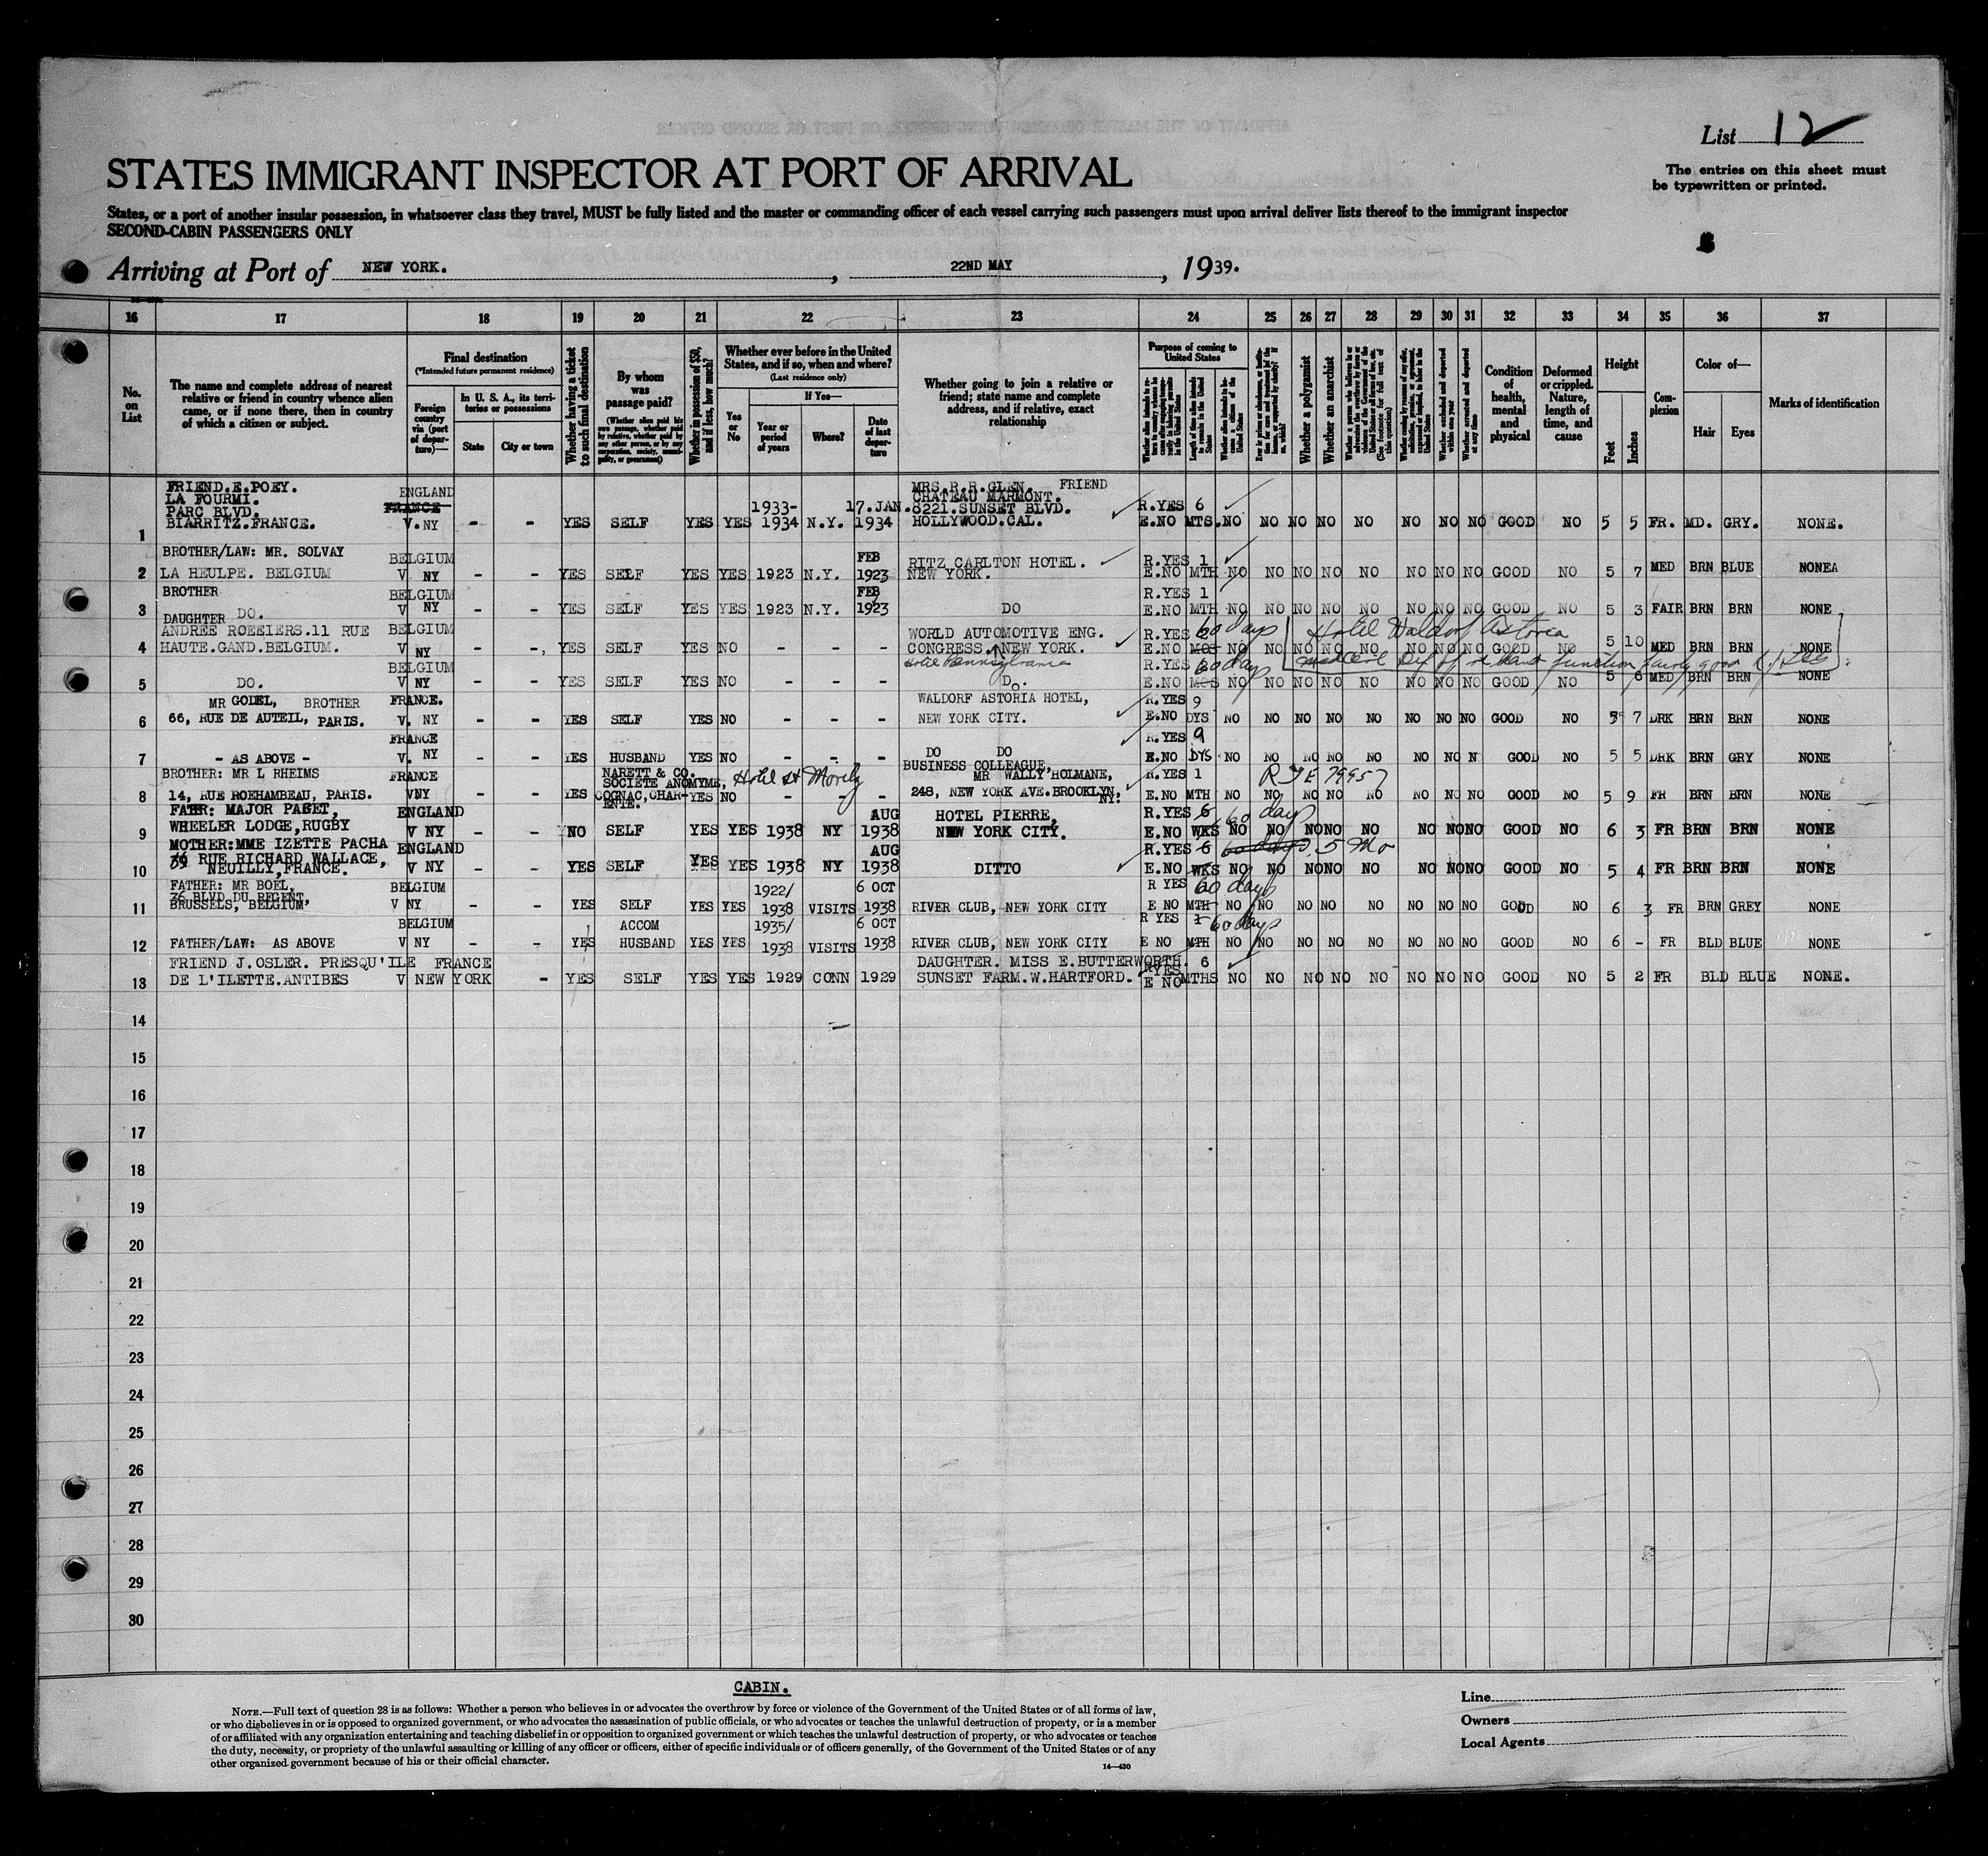 List 12
STATES IMMIGRANT INSPECTOR AT PORT OF ARRIVAL
The entries on this sheet must
be typewritten or printed.
States, or a port of another insular possession, in whatsoever class they travel, MUST be fully listed and the master or commanding officer of each vessel carrying such passengers must upon arrival deliver lists thereof to the immigrant inspector
SECOND-CABIN PASSENGERS ONLY
Arriving at Port of NEW YORK. , 22ND MAY , 1939.
16 17 18 19 20 21 22 23 24 25 26 27 28 29 30 31 32 33 34 35 36 37
No. on List
The name and complete address of nearest relative or friend in country whence alien came, or if none there, then in country of which a citizen or subject.
Final destination
(*Intended future permanent residence)
Foreign country via (port of departure)—
In U. S. A., its territories or possessions
State
City or town
Whether having a ticket to such final destination
By whom was passage paid?
(Whether alien paid his own passage, whether paid by relative, whether paid by any other person, or by any corporation, society, municipality, or government)
Whether in possession of $50, and if less, how much?
Whether ever before in the United States, and if so, when and where?
(Last residence only)
Yes or No
If Yes—
Year or period of years
Where?
Date of last departure
Whether going to join a relative or friend; state name and complete address, and if relative, exact relationship
Purpose of coming to United States
Length of time alien intends to remain in the United States
Whether alien intends to become a citizen of the United States
Whether a polygamist
Whether an anarchist
Whether excluded and deported within one year
Whether arrested and deported at any time
Condition of health, mental and physical
Deformed or crippled. Nature, length of time, and cause
Height
Feet
Inches
Complexion
Color of—
Hair
Eyes
Marks of identification
FRIEND.E.POEY. ENGLAND MRS.R.R.GLEN. FRIEND
LA FOURMI. FRANCE CHATEAU MARMONT.
PARC BLVD. 1933- 17.JAN. 8221.SUNSET BLVD. R.YES 6
1 BIARRITZ.FRANCE. V.NY - - YES SELF YES YES 1934 N.Y. 1934 HOLLYWOOD.CAL. E.NO MTS. NO NO NO NO NO NO NO NO GOOD NO 5 5 FR. MD. GRY. NONE.
BROTHER/LAW: MR. SOLVAY BELGIUM FEB RITZ CARLTON HOTEL. R.YES 1
2 LA HEULPE. BELGIUM V NY - - YES SELF YES YES 1923 N.Y. 1923 NEW YORK. E.NO MTH NO NO NO NO NO NO NO NO GOOD NO 5 7 MED BRN BLUE NONEA
BROTHER BELGIUM FEB R.YES 1
3 DO. V NY - - YES SELF YES YES 1923 N.Y. 1923 DO E.NO MTH NO NO NO NO NO NO NO NO GOOD NO 5 3 FAIR BRN BRN NONE
DAUGHTER
ANDREE ROEEIERS.11 RUE BELGIUM WORLD AUTOMOTIVE ENG. R.YES 60 days Hotel Waldorf Astoria
4 HAUTE.GAND.BELGIUM. V NY - -, YES SELF YES NO - - - CONGRESS. NEW YORK. E.NO MOS NO NO NO NO NO NO NO NO GOOD NO 5 10 MED BRN BRN NONE
BELGIUM Hotel Pennsylvania R.YES 60 days
5 DO. V NY - - YES SELF YES NO - - - DO. E.NO MOS NO NO NO NO NO NO NO NO GOOD NO 5 6 MED BRN BRN NONE
MR GODEL, BROTHER FRANCE. WALDORF ASTORIA HOTEL, R.YES 9
6 66, RUE DE AUTEIL, PARIS. V. NY - - YES SELF YES NO - - - NEW YORK CITY. E.NO DYS NO NO NO NO NO NO NO NO GOOD NO 5 7 DRK BRN BRN NONE
FRANCE R.YES 9
7 - AS ABOVE - V. NY - - YES HUSBAND YES NO - - - DO DO E.NO DYS NO NO NO NO NO NO NO N GOOD NO 5 5 DRK BRN GRY NONE
BROTHER: MR L RHEIMS FRANCE NARETT & CO. SOCIETE ANOMYME, Hotel St Moritz BUSINESS COLLEAGUE, MR WALLY HOLMANE, R.YES 1
8 14, RUE ROEHAMBEAU, PARIS. VNY - - YES COGNAC, CHAR-ENTE. YES NO - - - 248, NEW YORK AVE.BROOKLYN, NY. E.NO MTH NO NO NO NO NO NO NO NO GOOD NO 5 9 FR BRN BRN NONE
FATHR: MAJOR PAGET, ENGLAND AUG HOTEL PIERRE, R.YES 6 60 days
9 WHEELER LODGE,RUGBY V NY - - NO SELF YES YES 1938 NY 1938 NEW YORK CITY. E.NO WKS NO NO NO NO NO NO NO NO GOOD NO 6 3 FR BRN BRN NONE
MOTHER:MME IZETTE PACHA ENGLAND AUG R.YES 6 60 days. 5 Mo
39 RUE RICHARD WALLACE,
10 NEUILLY,FRANCE. V NY - - YES SELF YES YES 1938 NY 1938 DITTO E.NO WKS NO NO NO NO NO NO NO NO GOOD NO 5 4 FR BRN BRN NONE
FATHER: MR BOEL, BELGIUM 1922/ 6 OCT R YES 60 days
36 BLVD DU REGENT,
11 BRUSSELS, BELGIUM, V NY - - YES SELF YES YES 1938 VISITS 1938 RIVER CLUB, NEW YORK CITY E NO MTH NO NO NO NO NO NO NO NO GOOD NO 6 3 FR BRN GREY NONE
BELGIUM ACCOM 1935/ 6 OCT R YES 1 60 days
12 FATHER/LAW: AS ABOVE V NY - - YES HUSBAND YES YES 1938 VISITS 1938 RIVER CLUB, NEW YORK CITY E NO MTH NO NO NO NO NO NO NO NO GOOD NO 6 - FR BLD BLUE NONE
FRIEND J.OSLER. PRESQU'ILE FRANCE DAUGHTER. MISS E.BUTTERWORTH. RYES 6
13 DE L'ILETTE.ANTIBES V NEW YORK - YES SELF YES YES 1929 CONN 1929 SUNSET FARM.W.HARTFORD. E NO MTHS NO NO NO NO NO NO NO NO GOOD NO 5 2 FR BLD BLUE NONE.
14
15
16
17
18
19
20
21
22
23
24
25
26
27
28
29
30
CABIN.
NOTE.—Full text of question 28 is as follows: Whether a person who believes in or advocates the overthrow by force or violence of the Government of the United States or of all forms of law,
or who disbelieves in or is opposed to organized government, or who advocates the assassination of public officials, or who advocates or teaches the unlawful destruction of property, or is a member
of or affiliated with any organization entertaining and teaching disbelief in or opposition to organized government or which teaches the unlawful destruction of property, or who advocates or teaches
the duty, necessity, or propriety of the unlawful assaulting or killing of any officer or officers, either of specific individuals or of officers generally, of the Government of the United States or of any
other organized government because of his or their official character.
14—430
Line
Owners
Local Agents